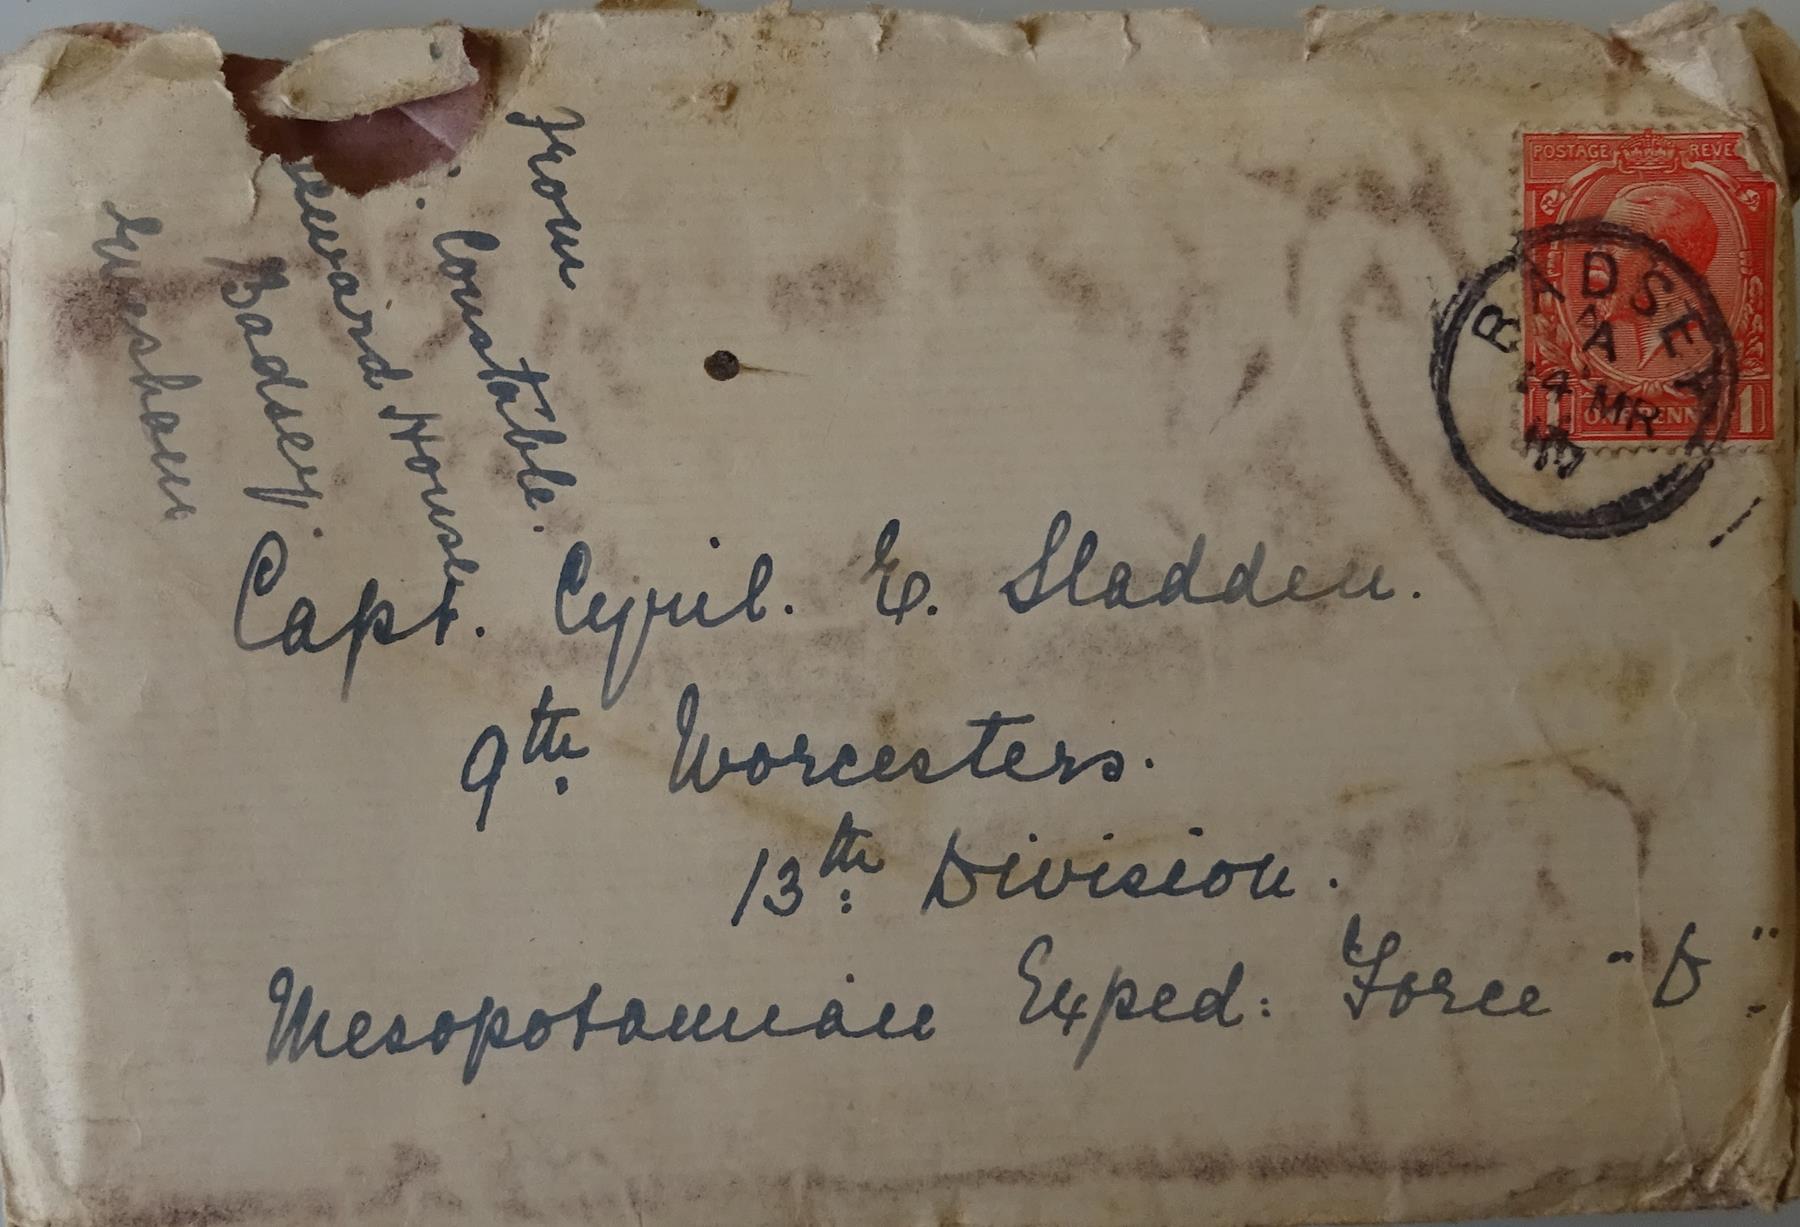 From
Constable.
Seward House
Badsey.
Evesham
POSTAGE REVE
BADSEY
A
14 MR
17
1 ONE PENNY 1
Capt. Cyril. E. Sladden.
9th. Worcesters.
13th: Division.
Mesopotamian Exped: Force "D".